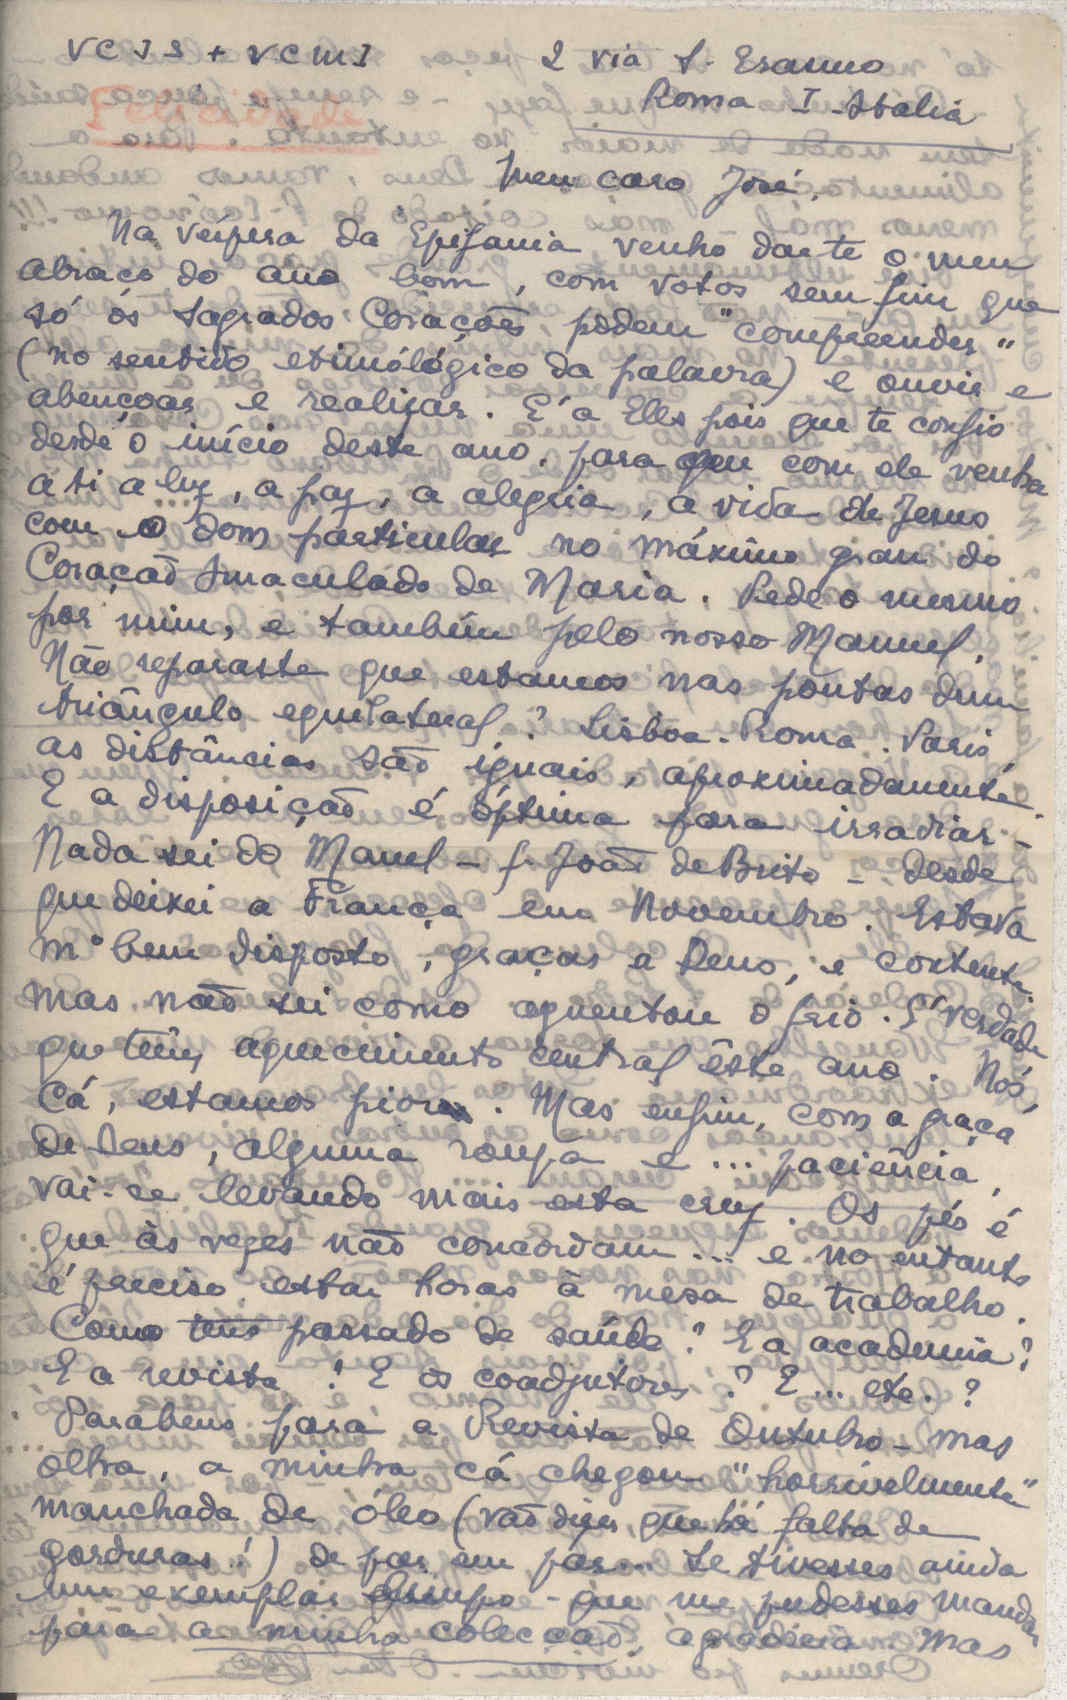 VCJS + VCMJ
2 via S. Erasmo
Roma I - Italia
Felicidade
Meu caro José,
Na véspera da Epifania venho dar te o meu
abraço do ano bom, com votos sem fim que
só os Sagrados Corações podem "compreender"
(no sentido etimológico da palavra) e ouvir e
abençoar e realizar. É a Elles pois que te confio
desde o início deste ano, para que com ele venha
a ti a luz, a paz, a alegria, a vida de Jesus
com o dom particular no máximo grau do
Coração Imaculado de Maria. Pede o mesmo
por mim, e também pelo nosso Manuel.
Não reparaste que estamos nas pontas dum
triângulo equilateral? Lisboa. Roma. Paris
as distâncias são iguais, aproximadamente.
E a disposição é óptima para irradiar -
Nada sei do Manuel - S. João de Brito - desde
que deixei a França em Novembro. Estava
mº bem disposto, graças a Deus, e contente.
Mas não sei como aguentou o frio. É verdade
que têm aquecimento central êste ano. Nós,
Cá, estamos piores. Mas enfim, com a graça
de Deus, alguma roupa e ... paciência,
vai-se levando mais esta cruz. Os pés é
que às vezes não concordam... e no entanto
é preciso estar horas à mesa de trabalho.
Como tens passado de saúde? E a academia?
E a revista? E os coadjutores? E... etc.?
Parabens para a Revista de Outubro - mas
olha, a minha cá chegou "horrivelmente"
manchada de óleo (vão dizer que há falta de
gorduras!) de par em par... Se tivesses ainda
um exemplar limpo - que me pudesses mandar
para a minha colecção, agradecia. Mas